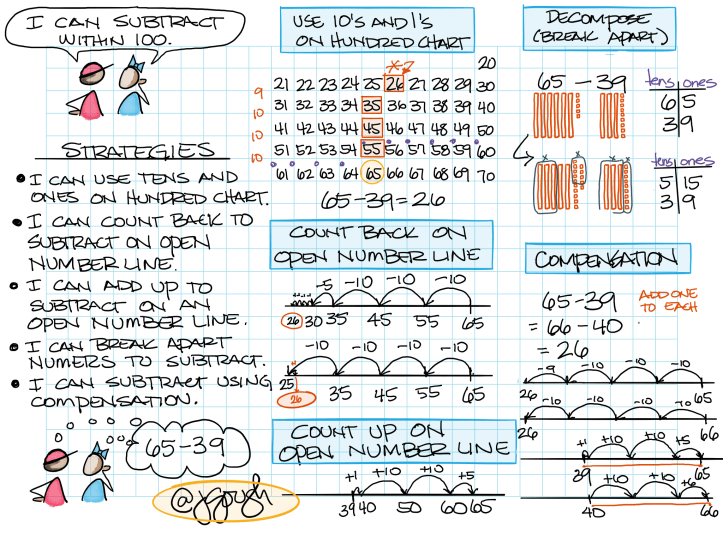 I CAN SUBTRACT
WITHIN 100.
STRATEGIES
I CAN USE TENS AND
ONES ON HUNDRED CHART.
I CAN COUNT BACK TO
SUBTRACT ON OPEN
NUMBER LINE.
I CAN ADD UP TO
SUBTRACT ON AN
OPEN NUMBER LINE.
I CAN BREAK APART
NUMERS TO SUBTRACT.
I CAN SUBTRACT USING
COMPENSATION.
65-39
USE 10'S AND 1'S
ON HUNDRED CHART
20
9 21 22 23 24 25 26 27 28 29 30
10 31 32 33 34 35 36 37 38 39 40
10 41 42 43 44 45 46 47 48 49 50
10 51 52 53 54 55 56 57 58 59 60
61 62 63 64 65 66 67 68 69 70
65-39=26
COUNT BACK ON
OPEN NUMBER LINE
-5 -10 -10 -10
26 30 35 45 55 65
-10 -10 -10 -10
25 35 45 55 65
26
COUNT UP ON
OPEN NUMBER LINE
+1 +10 +10 +5
39 40 50 60 65
DECOMPOSE
(BREAK APART)
65-39
tens ones
6 5
3 9
tens ones
5 15
3 9
COMPENSATION
65-39 ADD ONE
TO EACH
= 66-40
= 26
-9 -10 -10 -10
26 65
-10 -10 -10 -10
26 66
+1 +10 +10 +5
39 65
+10 +10 +6
40 66